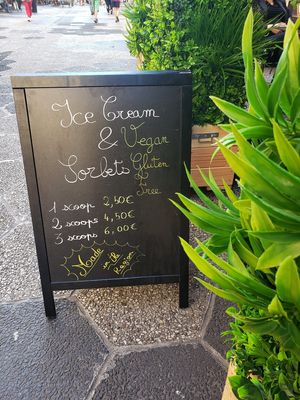 Ice Cream
& Vegan
Sorbets Gluten
Free
1 scoop 2,50€
2 scoops 4,50€
3 scoops 6,00€
Made
in the
Region